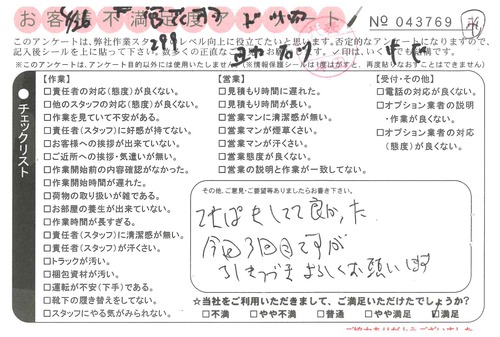 お客様不満足度アンケート
No 043769
このアンケートは、弊社作業スタッフのレベル向上に役立てたいと思います。否定的なアンケートになりますので、
※このアンケートは、アンケート目的以外には使用いたしません。(※情報保護シールは1度はがすと、再度貼りなおすことはできません)
チェックリスト
【作業】
□責任者の対応(態度)が良くない。
□他のスタッフの対応(態度)が良くない。
□作業を見ていて不安がある。
□責任者(スタッフ)に好感が持てない。
□お客様への挨拶が出来ていない。
□ご近所への挨拶・気遣いが無い。
□作業開始前の内容確認がなかった。
□作業開始時間が遅れた。
□荷物の取り扱いが雑である。
□お部屋の養生が出来ていない。
□作業時間が長すぎる。
□責任者(スタッフ)に清潔感が無い。
□責任者(スタッフ)が汗くさい。
□トラックが汚い。
□梱包資材が汚い。
□運転が不安(下手)である。
□靴下の履き替えをしてない。
□スタッフにやる気がみられない。
【営業】
□見積もり時間に遅れた。
□見積もり時間が長い。
□営業マンに清潔感が無い。
□営業マンが煙草くさい。
□営業マンが汗くさい。
□営業態度が良くない。
□営業の説明と作業が一致してない。
【受付・その他】
□電話の対応が良くない。
□オプション業者の説明
・作業が良くない。
□オプション業者の対応
(態度)が良くない。
その他、ご意見・ご要望等ありましたらお書き下さい。
てきぱきしてて良かった
今回3回目ですが
引きつづきよろしくお願いします
☆当社をご利用いただきまして、ご満足いただけたでしょうか?
□不満 □やや不満 □普通 □やや満足 ☑満足
ご協力ありがとうございました